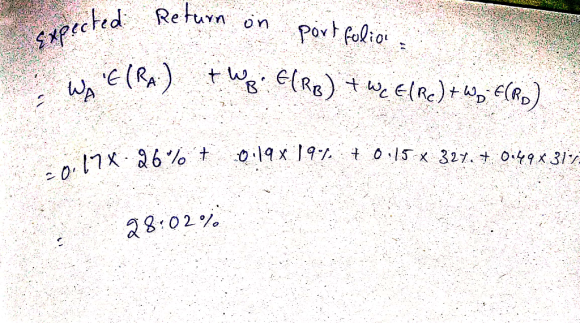 Expected Return on portfolio =
= W_A · E(R_A) + W_B · E(R_B) + W_C E(R_C) + W_D · E(R_D)
= 0.17 x 26% + 0.19 x 19% + 0.15 x 32% + 0.49 x 31%
= 28.02%